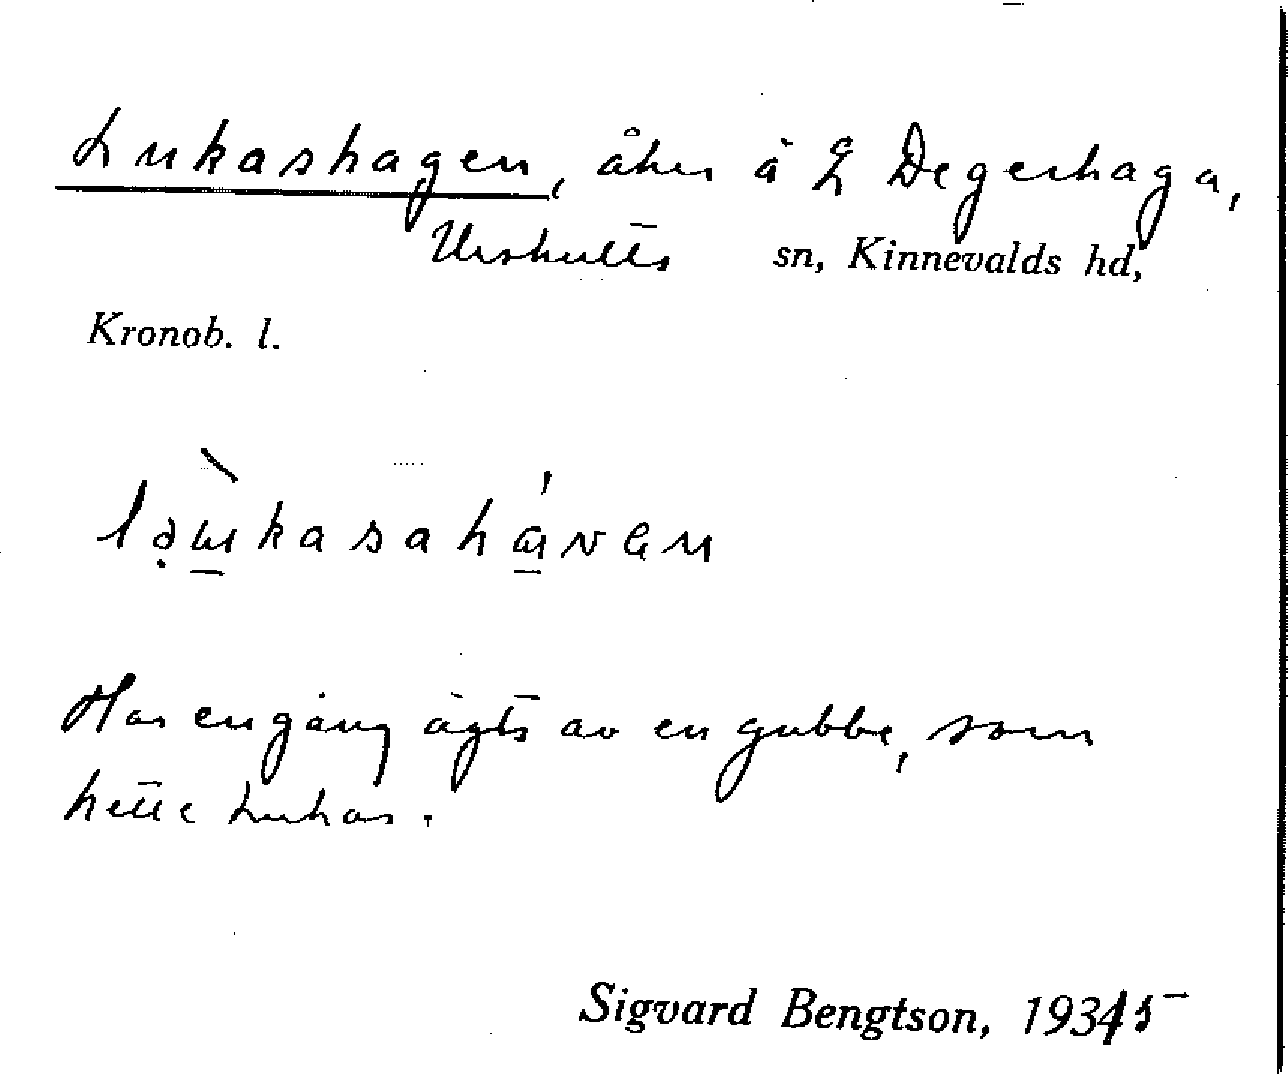 Lukashagen, åker å L Degerhaga,
Urshults sn, Kinnevalds hd,
Kronob. l.
Har en gång ägts av en gubbe, som
hette Lukas.
Sigvard Bengtson, 1935